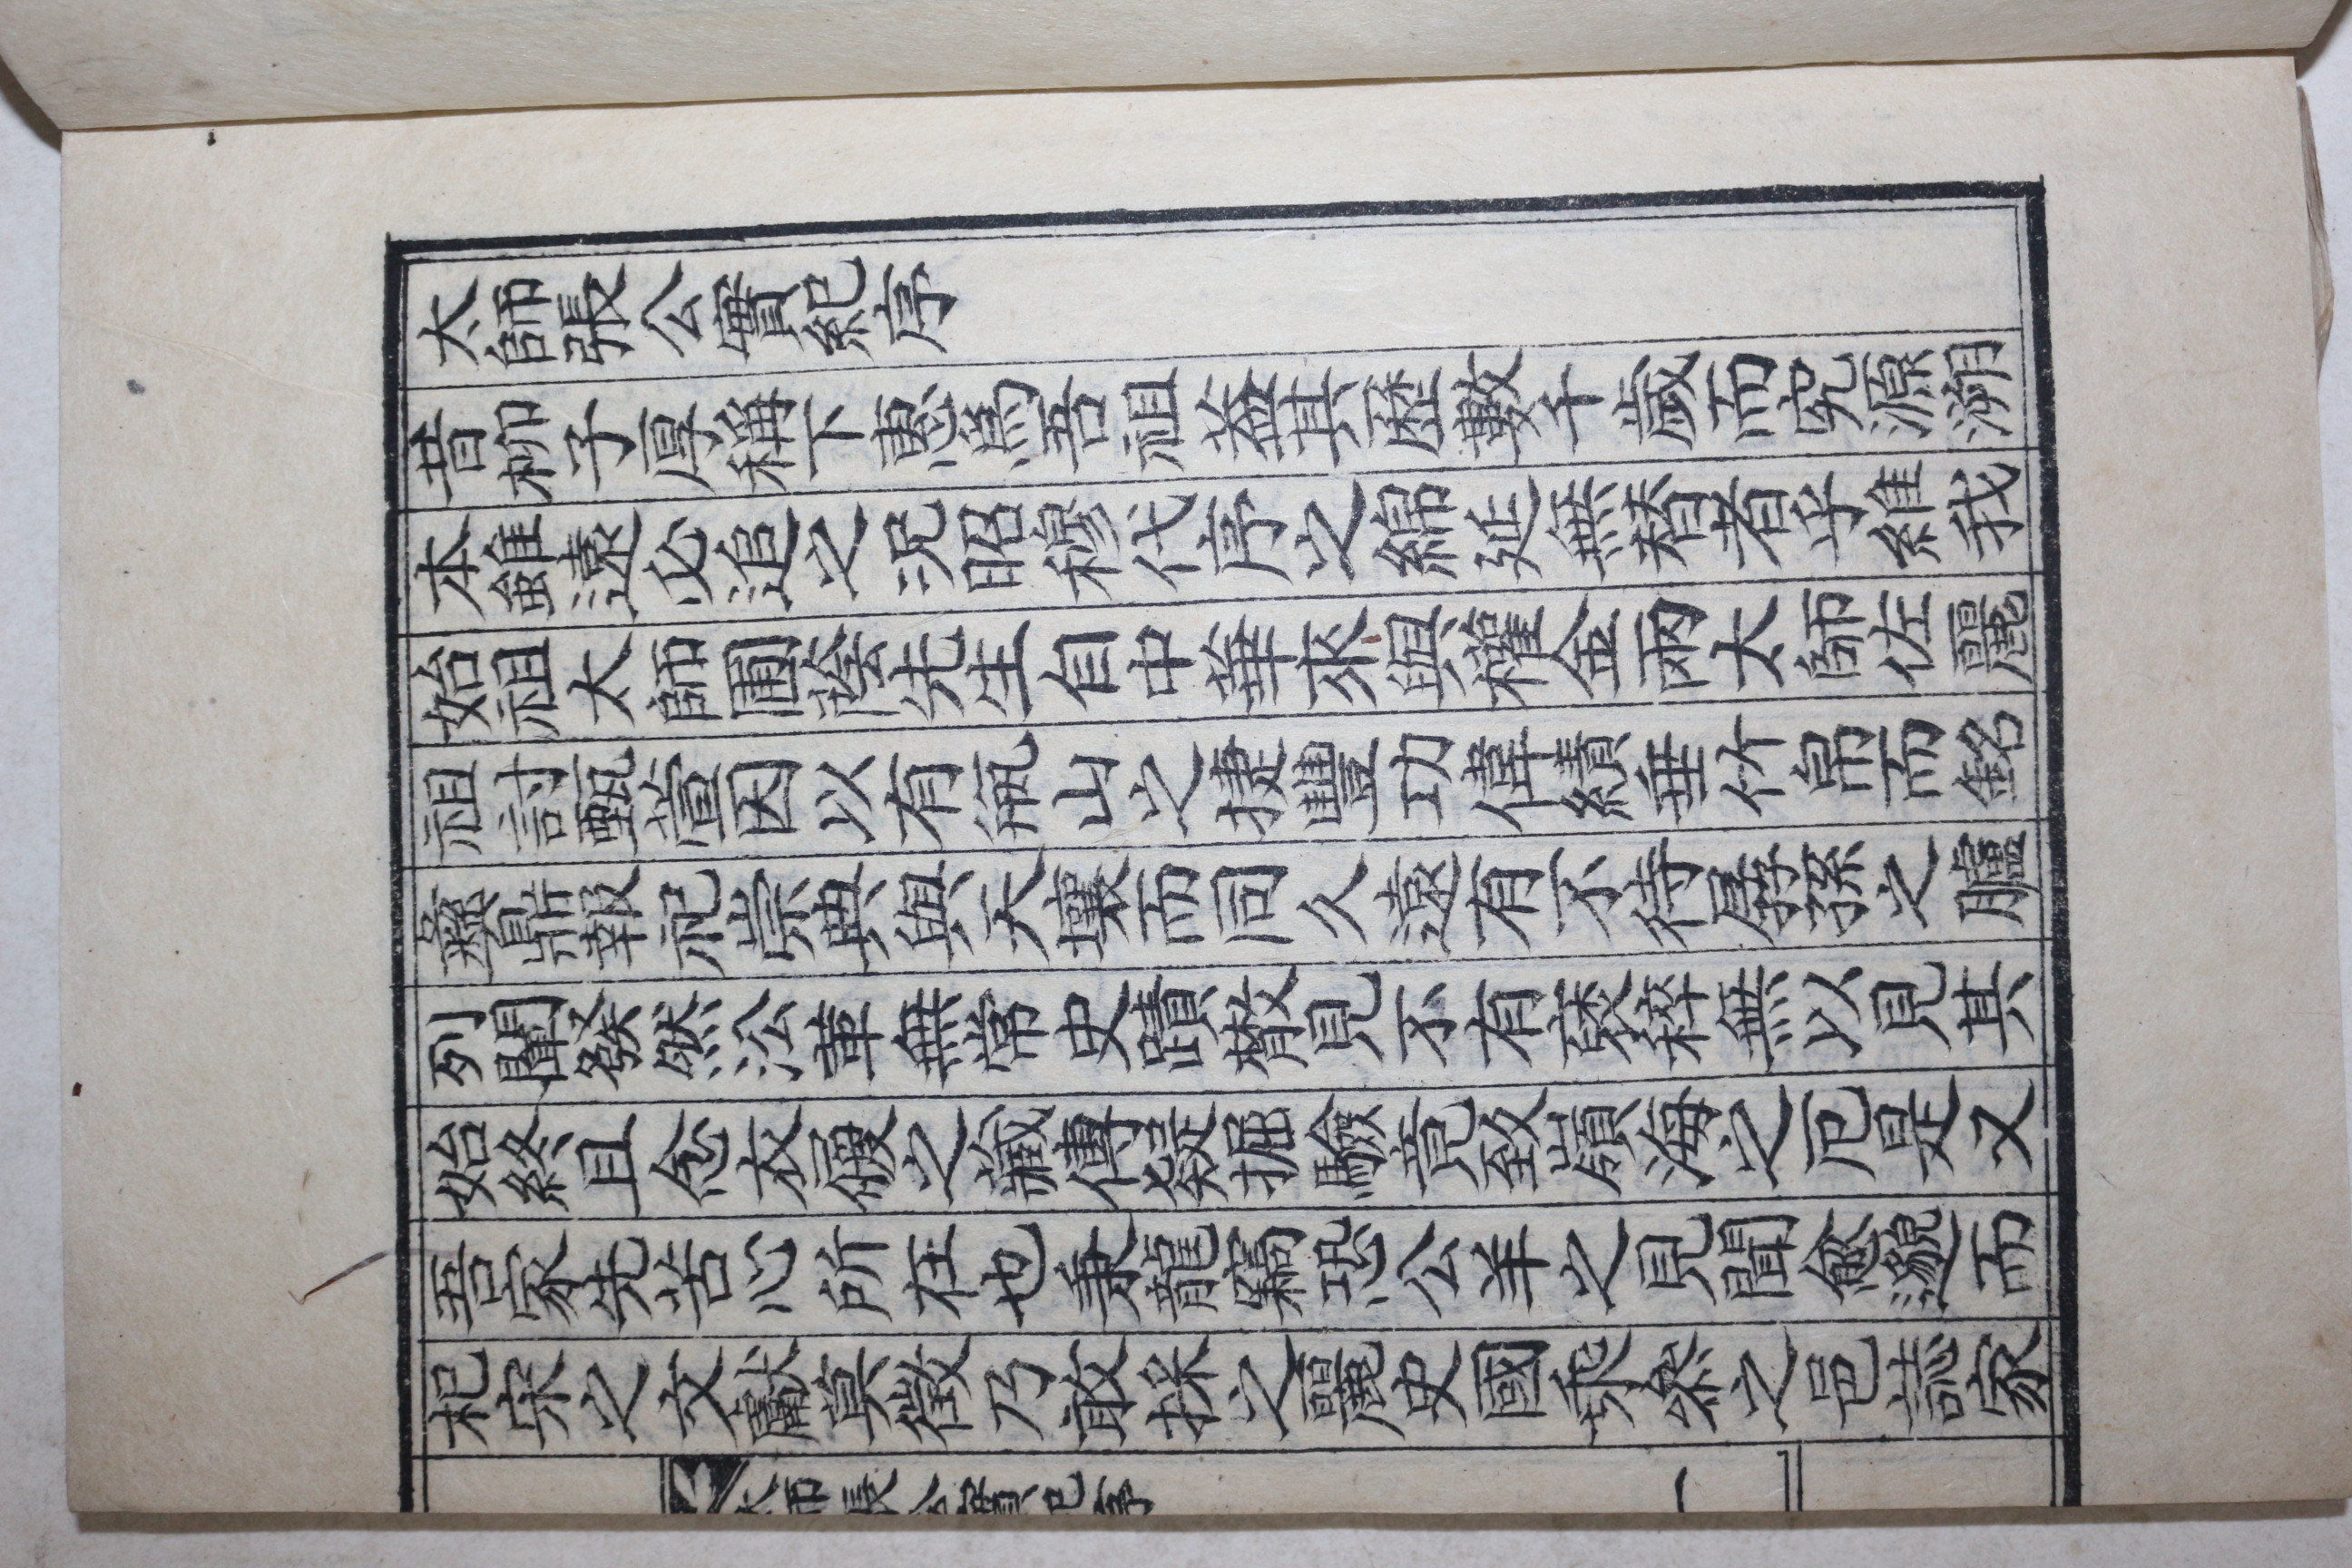 太師張公實紀序
昔柳子厚稱下惠爲吾祖葢其歷數千歲而究源溯
本雖遠必追之况昭穆代序之綿延無替者乎維我
始祖太師圃蔭先生自中華來與權金兩太師佐麗
祖討甄萱因以有甁山之捷豐功偉績垂竹帛而銘
彛鼎報祀崇典與天壤而同久遠有不待孱孫之臚
列闡發然㳂革無常史蹟散見不有裒稡無以見其
始終且念衣履之藏傳疑掘驗竟致嶺海之厄是又
吾家先苦心所在也秉龍竊恐公羊之見聞愈邈而
杞宋之文獻莫徵乃敢採之麗史國乘叅之邑誌家
太師張公實紀序
一